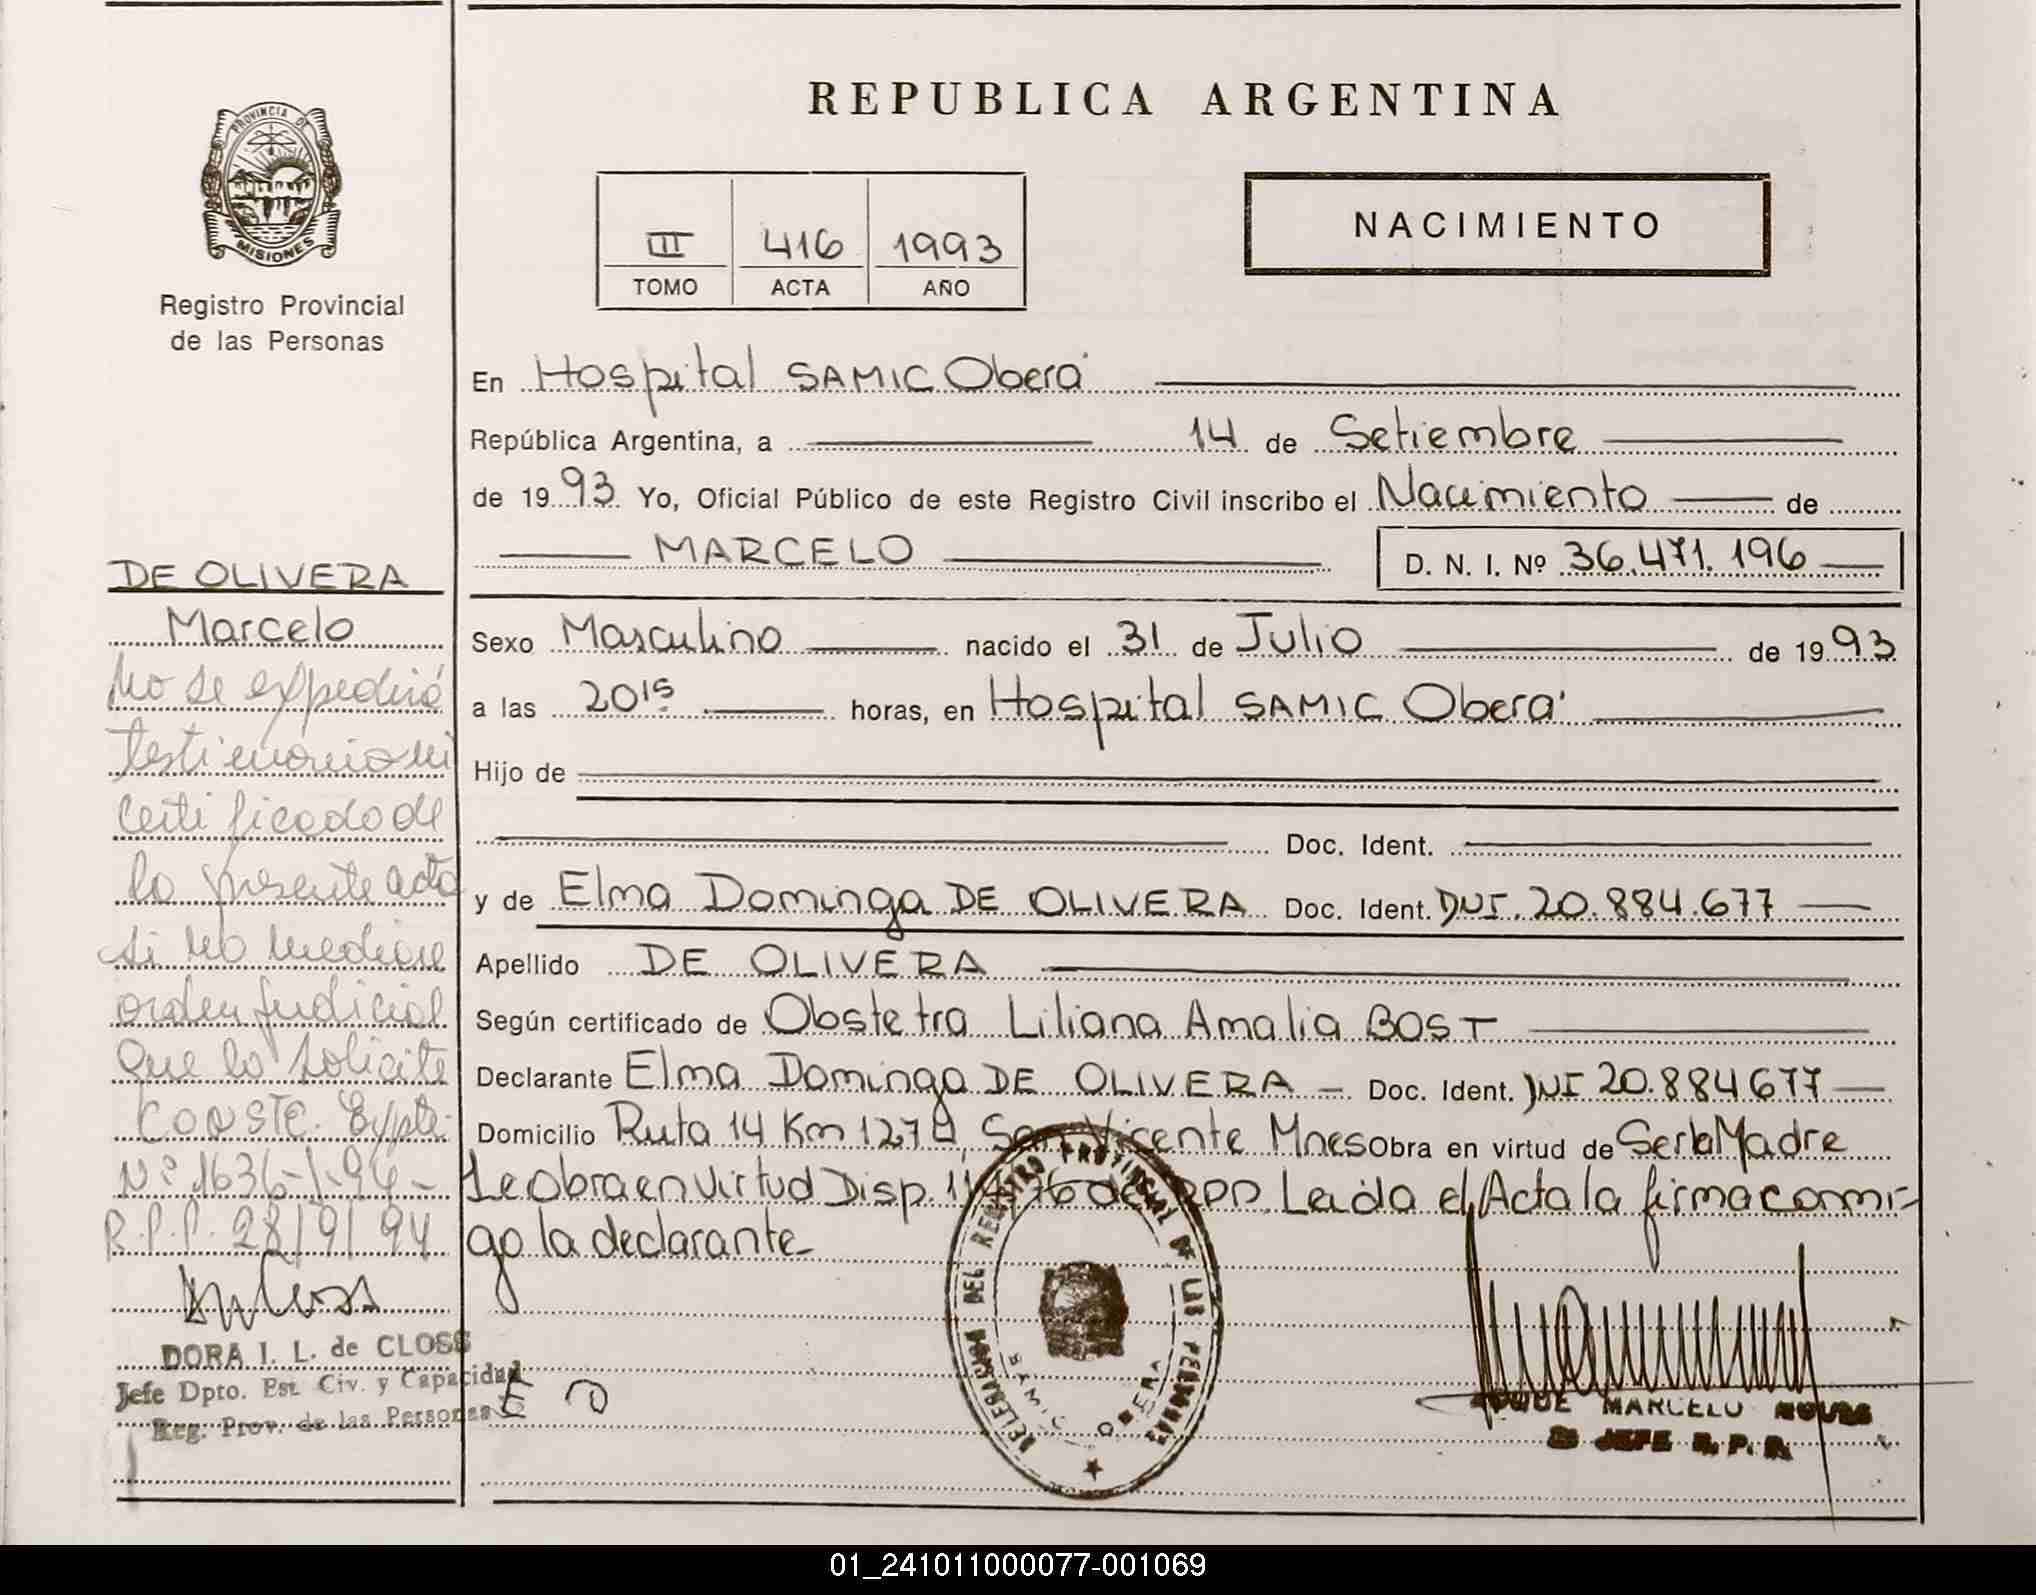 REPUBLICA ARGENTINA
PROVINCIA DE
MISIONES
Registro Provincial
de las Personas
III 416 1993
TOMO ACTA AÑO
NACIMIENTO
En Hospital SAMIC Oberá
República Argentina, a 14 de Setiembre
de 1993 Yo, Oficial Público de este Registro Civil inscribo el Nacimiento de
MARCELO
D. N. I. Nº 36.471.196
Sexo Masculino nacido el 31 de Julio de 1993
a las 20 15 horas, en Hospital SAMIC Oberá
Hijo de
Doc. Ident.
y de Elma Dominga DE OLIVERA Doc. Ident. DNI. 20.884.677
Apellido DE OLIVERA
Según certificado de Obstetra Liliana Amalia BOST
Declarante Elma Dominga DE OLIVERA Doc. Ident. DNI 20.884677
Domicilio Ruta 14 Km 1270 San Vicente Mnes Obra en virtud de Ser la Madre
Se obra en virtud Disp. de RPP. Leida el Acta la firma conmi-
go la declarante
E D
DELEGACION DEL REGISTRO PROVINCIAL DE LAS PERSONAS
OBERA
ROQUE MARCELO
JEFE R. P. P.
DE OLIVERA
Marcelo
No se expedirá
testimonio ni
certificado de
la presente acta
si no mediase
orden judicial
que lo solicite
CONSTE. Expte.
Nº 1636-I-94-
R.P.P. 28/9/94
DORA I. L. de CLOSS
Jefe Dpto. Est. Civ. y Capacidad
Reg. Prov. de las Personas
01_241011000077-001069